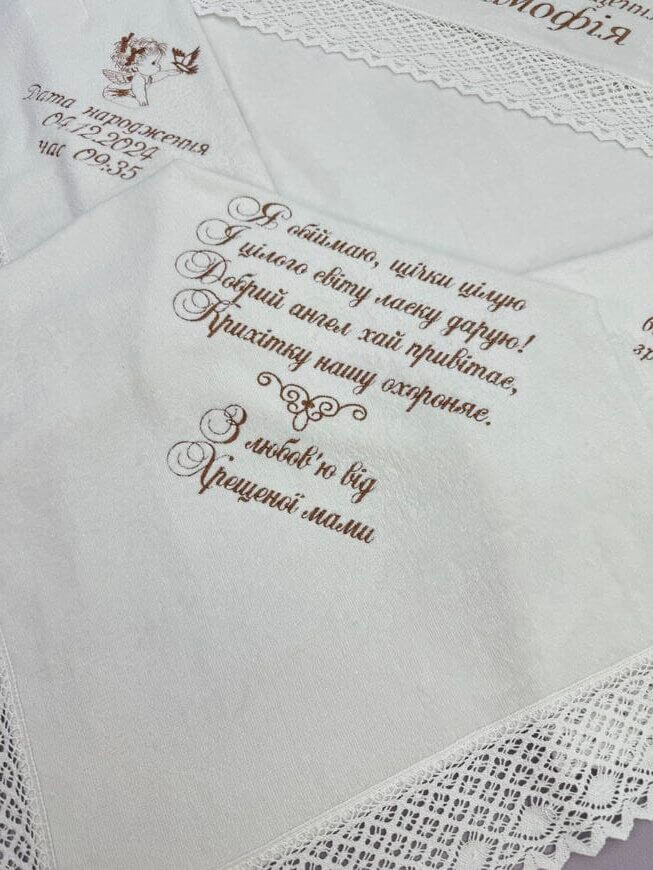 Дата народження
04.12.2024
час 09:35
Я обіймаю, щічки цілую
І цілого світу ласку дарую!
Добрий ангел хай привітає,
Крихітку нашу охороняє.
З любов'ю від
Хрещеної мами